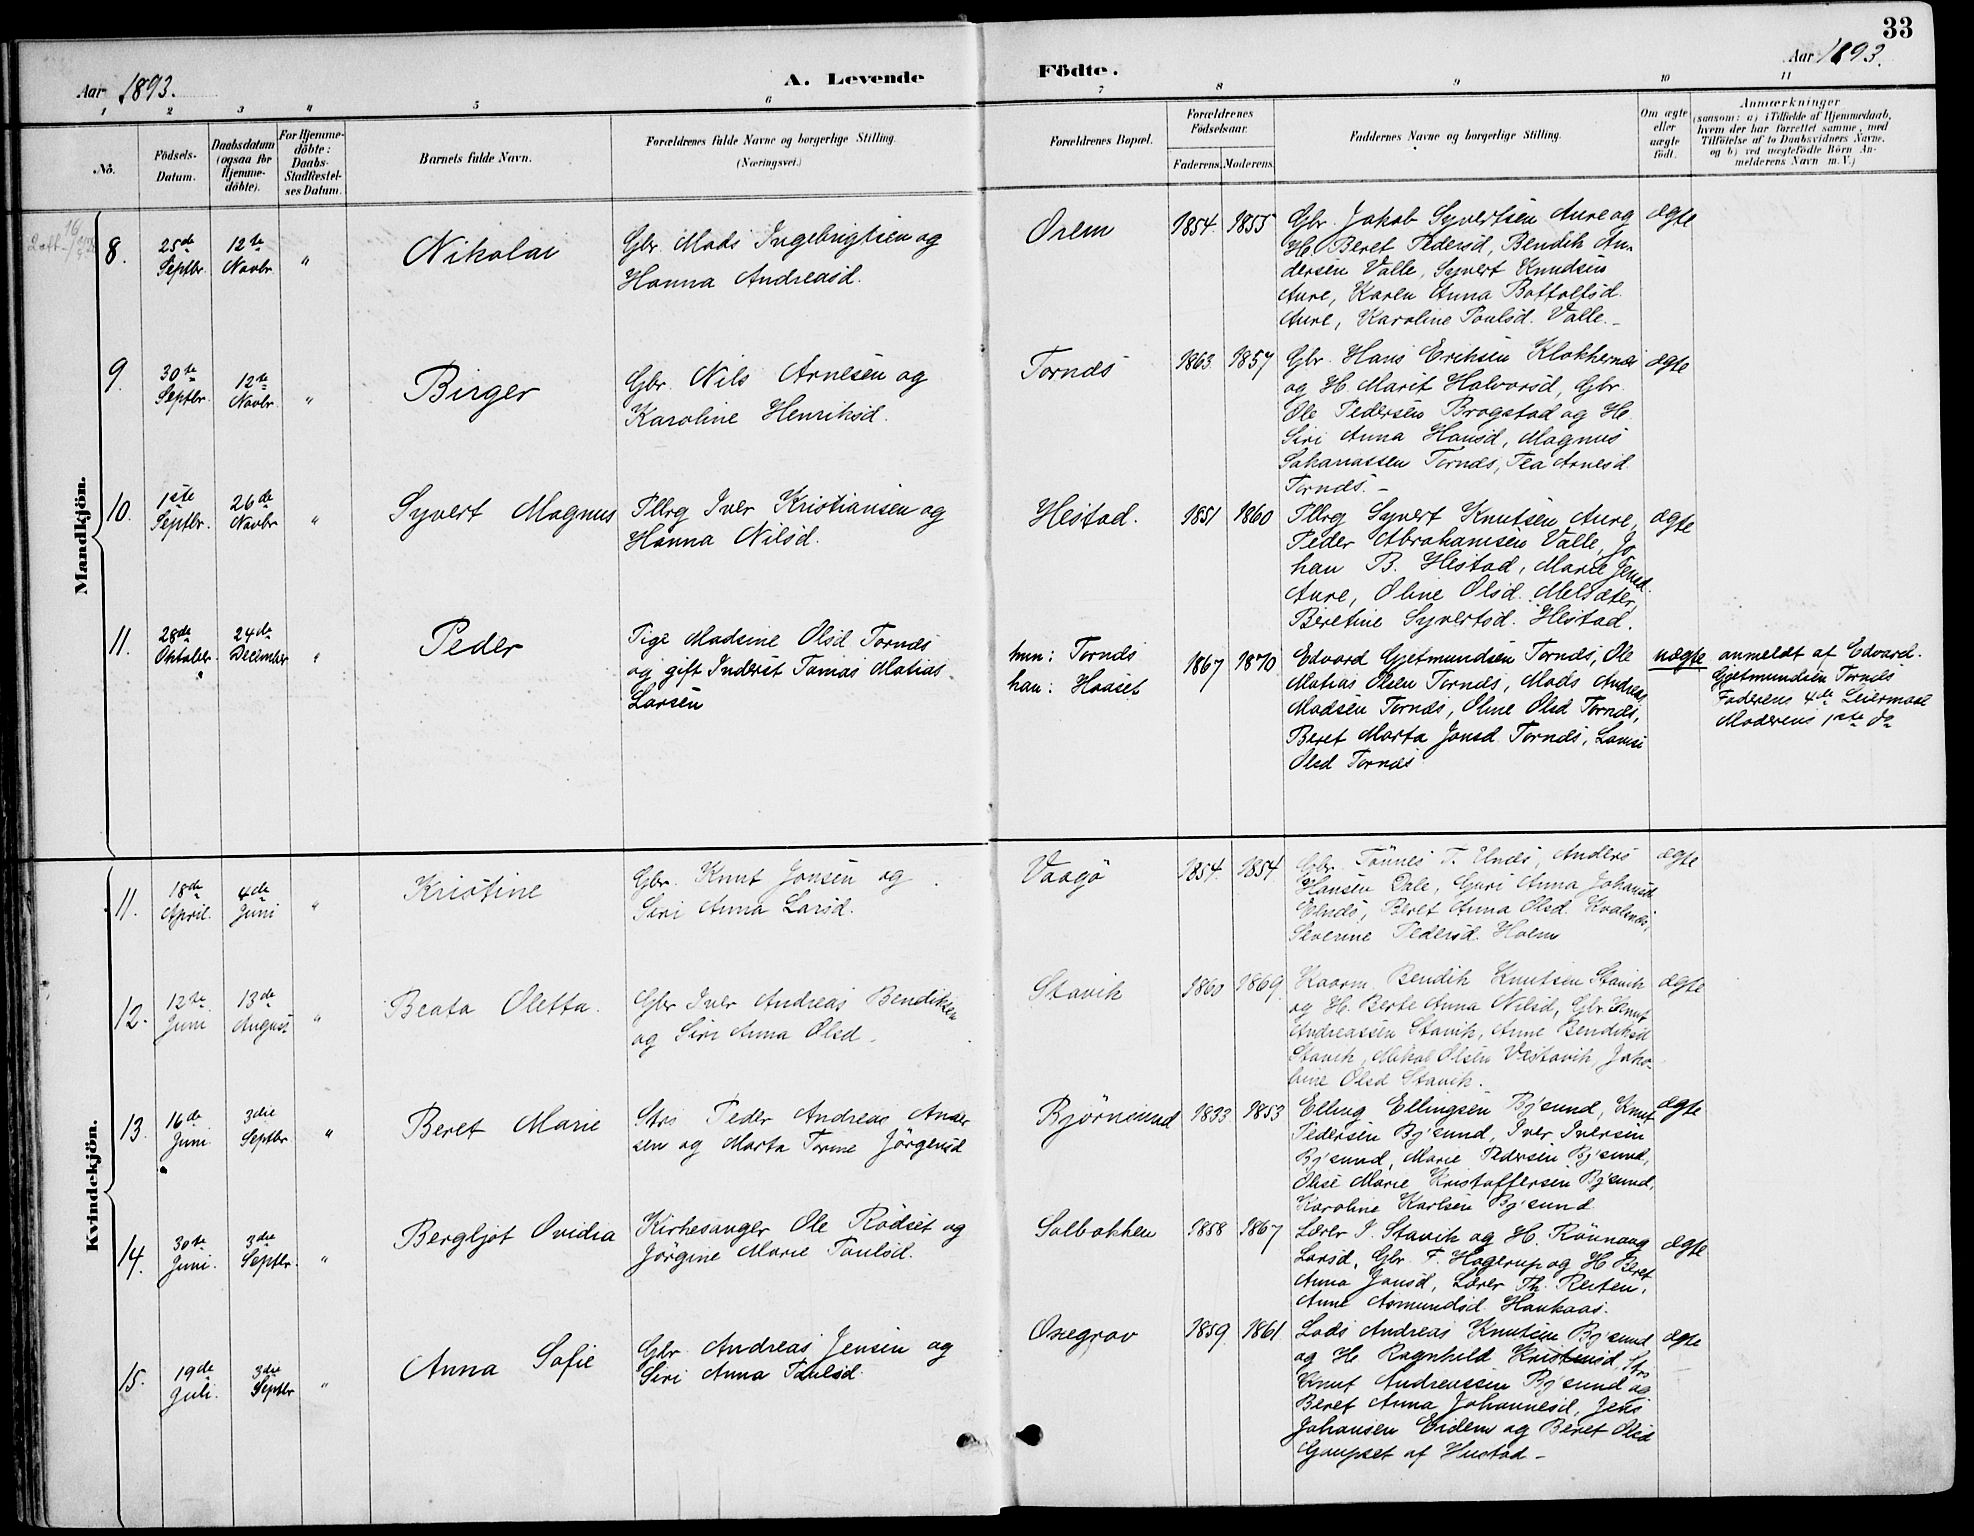 33
Aar 1893.
A. Levende
Födte.
Aar 1893.
1 2 3 4 5 6 7 8 9 10 11
No.
Födsels-
Datum.
Daabsdatum
(ogsaa for
Hjemme-
döbte).
For Hjemme-
döbte:
Daabs-
Stadfæstel-
ses Datum.
Barnets fulde Navn.
Forældrenes fulde Navne og borgerlige Stilling.
(Næringsvei.)
Forældrenes Bopæl.
Forældrenes
Födselsaar.
Faderens. Moderens.
Faddernes Navne og borgerlige Stilling.
Om ægte
eller
uægte
födt.
Anmærkninger
(saasom: a) i Tilfælde af Hjemmedaab,
hvem der har forrettet samme, med
Tilföielse af to Daabsvidners Navne.
og b) ved uægtefödte Börn An-
melderens Navn m. V.)
Mandkjön.
8. 25de
Septbr.
12te
Novbr.
"
Nikolai
Gbr. Mads Ingebrigtsen og
Hanna Andreasd.
Orem
1854. 1855
Gbr. Jakob Syvertsen Aure og
H. Beret Pedersd, Bendik An-
dersen Valle, Syvert Knudsen
Aure, Karen Anna Bottolfsd.
Aure, Karoline Paulsd. Valle.-
ægte
9. 30te
Septbr.
12te
Novbr.
"
Birger
Gbr. Nils Arnesen og
Karoline Henriksd.
Tornes
1863. 1857
Gbr. Hans Eriksen Klokkernes
og H. Marit Halvorsd, Gbr.
Ole Pedersen Brogstad og H.
Siri Anna Hansd, Magnus
Sakariassen Tornes, Tea Arnesd.
Tornes.-
ægte
10. 1ste
Septbr.
26de
Novbr
"
Syvert Magnus
Pllrg Iver Kristiansen og
Hanna Nilsd.
Hestad.
1851 1860
Pllrg Syvert Knutsen Aure,
Peder Abrahamsen Valle, Jo
han B. Hestad, Marie Jensd.
Aure, Oline Olsd. Melsæter,
Beretine Syvertsd. Hestad.
ægte
11. 28de
Oktober.
24de
December
"
Peder
Pige Madsine Olsd Tornes
og gift Inderst Tomas Matias
Larsen
hun: Tornes
han: Haaset
1867 1870
Edvard Gjetmundsen Tornes, Ole
Matias Olsen Tornes, Mads Andreas
Madsen Tornes, Oline Olsd Tornes,
Beret Marta Jonsd. Tornes, Lovise
Olsd Tornes
uægte
anmeldt af Edvard.
Gjetmundsen Tornes
Faderens 4de Leiermaal
Moderens 1ste do
Kvindekjön.
11. 18de
April.
4de
Juni
"
Kristine
Gbr. Knut Jonsen og
Siri Anna Larsd.
Vaagö
1854. 1854
Gbr. Tönnes T. Unes, Anders
Hansen Dale, Guri Anna Johansd.
Elnes, Beret Anna Olsd. Kvalsnes,
Severine Pedersd. Holm
ægte
12. 12te
Juni
13de
August
"
Beata Oletta.
Gbr Iver Andreas Bendiksen
og Siri Anna Olsd.
Stavik
1860 1869
Kaarm. Bendik Knutsen Stavik
og H. Berte Anna Nilsd, Gbr. Knut
Andreassen Stavik, Anne Bendiksd
Stavik, Mikal Olsen Vestavik, Jako-
bine Olsd Stavik.
ægte
13. 16de
Juni
3die
Septbr
"
Beret Marie
Strs Peder Andreas Ander
sen og Marta Torine Jörgensd
Bjørnsund
1853
Elling Ellingsen Bj'sund, Knut
Pedersen Bj'sund, Iver Iversen
Bj'sund, Marie Pedersen Bj'sund,
Olise Marie Kristoffersen Bj'sund,
Karoline Karlsen Bj'sund
ægte
14. 30te
Juni.
3die
Septbr.
"
Bergljot Ovidia
Kirkesanger Ole Rødset og
Jörgine Marie Paulsd.
Solbakken
1858 1867
Lærer I. Stavik og H. Rönnaug
Larsd, Gbr. F. Hagerup og H. Beret
Anna Jonsd, Lærer Th. Reiten,
Anne Asmundsd. Haukaas.
ægte
15. 19de
Juli.
3die
Septbr
"
Anna Sofie
Gbr Andreas Jensen og
Siri Anna Paulsd.
Oxegrov
1859. 1861
Lods Andreas Knutsen Bj'sund
og H. Ragnhild Kristensd, Strs
Knut Andreassen Bj'sund og
Beret Anna Johannesd, Jens
Johansen Eidem og Beret Olsd
Gaupset af Hustad-
ægte